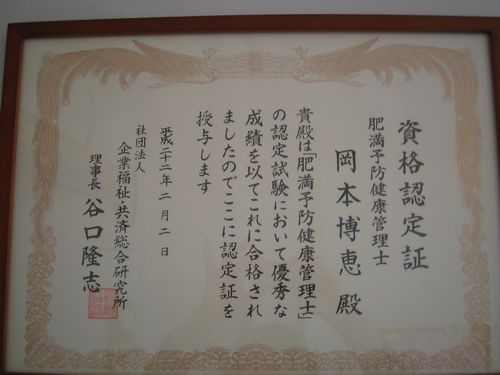 資格認定証
肥満予防健康管理士
岡本博恵 殿
貴殿は「肥満予防健康管理士」
の認定試験において優秀な
成績を以てこれに合格され
ましたのでここに認定証を
授与します
平成二十二年二月二日
社団法人
企業福祉・共済総合研究所
理事長 谷口隆志